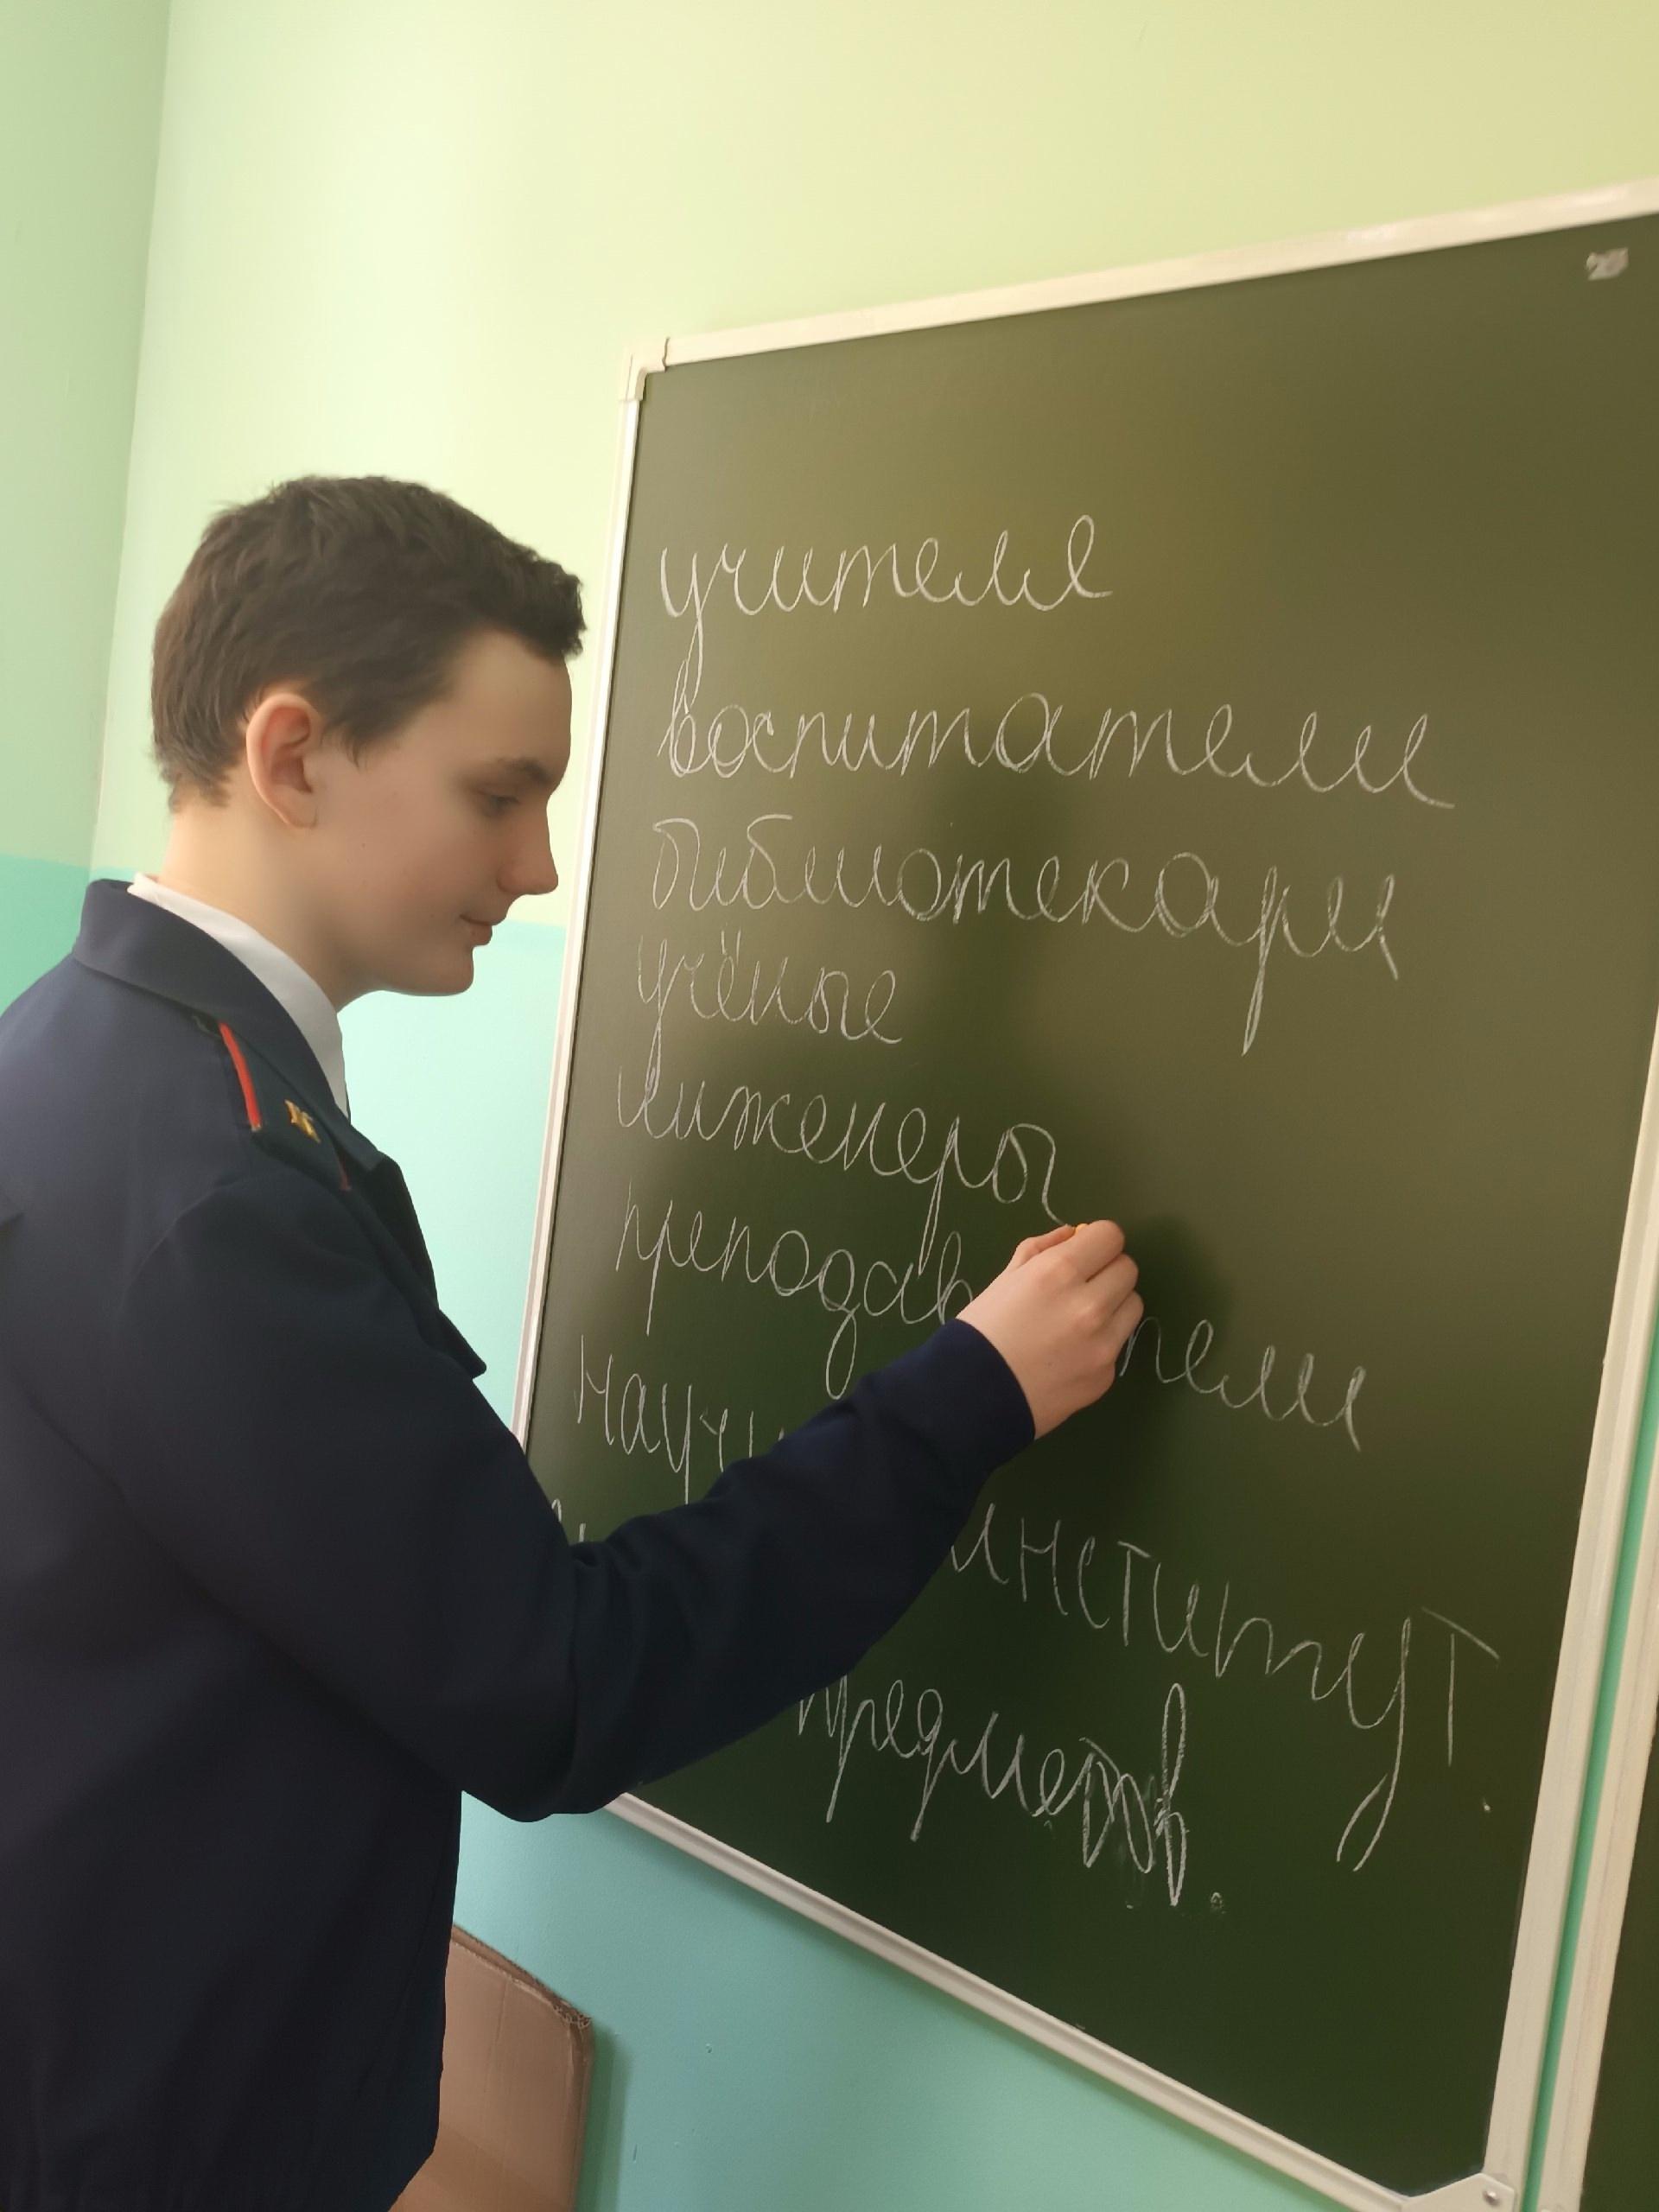 учителя
воспитатели
библиотекари
учёные
инженеры
преподаватели
институт
предметов.